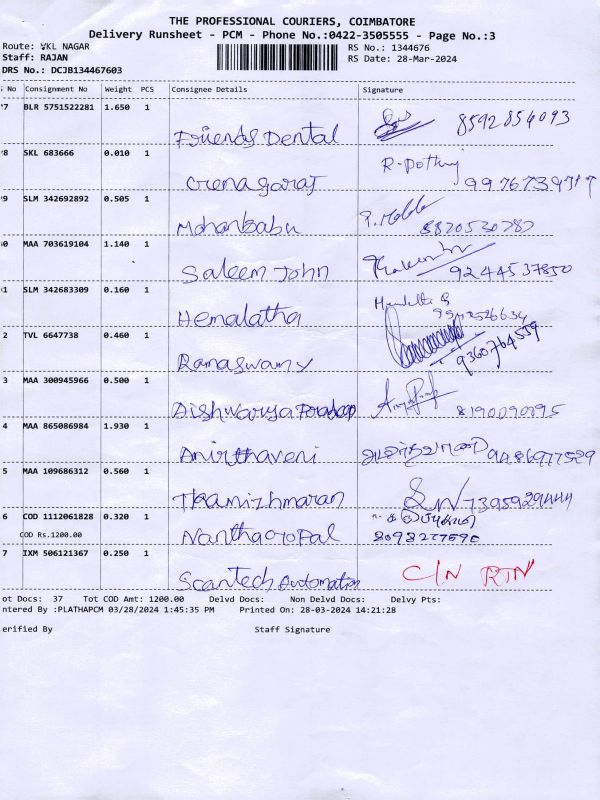 THE PROFESSIONAL COURIERS, COIMBATORE
Delivery Runsheet - PCM - Phone No.:0422-3505555 - Page No.:3
Route: VKL NAGAR
RS No.: 1344676
Staff: RAJAN
RS Date: 28-Mar-2024
DRS No.: DCJB134467603
No Consignment No Weight PCS Consignee Details Signature
7 BLR 5751522281 1.650 1
Friends Dental 8592854093
8 SKL 683666 0.010 1
R-Pothuj
9976739717
9 SLM 342692892 0.505 1
Mohanbabu 8870530787
0 MAA 703619104 1.140 1
Saleem John 9244537850
1 SLM 342683309 0.160 1
Hemalatha
2 TVL 6647738 0.460 1
Ramaswamy 9360764559
3 MAA 300945966 0.500 1
Aishwarya Poradap 8190090895
4 MAA 865086984 1.930 1
Anirthaveni 9486977529
5 MAA 109686312 0.560 1
Thamizhmaran 7395929444
6 COD 1112061828 0.320 1
COD Rs.1200.00
NanthaGopal 8098277590
7 IXM 506121367 0.250 1
Scantech Automation C/N RTN
ot Docs: 37 Tot COD Amt: 1200.00 Delvd Docs: Non Delvd Docs: Delvy Pts:
ntered By :PLATHAPCM 03/28/2024 1:45:35 PM Printed On: 28-03-2024 14:21:28
erified By Staff Signature